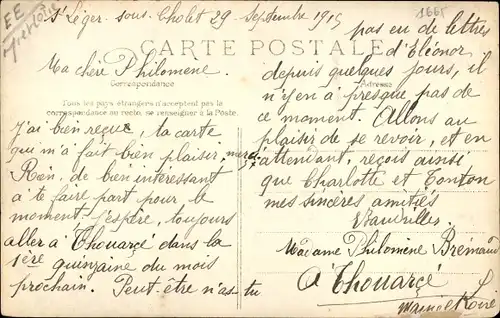 St Léger sous Cholet 29 Septembre 1915
EE
1665
CARTE POSTALE
Ma chère Philomène.
Correspondance
Tous les pays étrangers n'acceptent pas la
correspondance au recto, se renseigner à la Poste.
J'ai bien reçue, la carte
qui m'a fait bien plaisir, merci
Rien, de bien intéressant
à te faire part pour le
moment. J'espère, toujours
aller à Thouarcé dans la
1ère quinzaine du mois
prochain. Peut-être n'as-tu
pas eu de lettres
d'Eléonor
depuis quelques jours, il
Adresse
n'y en a presque pas de
ce moment. Allons au
plaisir de se revoir, et en
attendant, reçois ainsi
que Charlotte et Tonton
mes sincères amitiés
Madame Philomène Brémaud
à Thouarcé
Maine et Loire